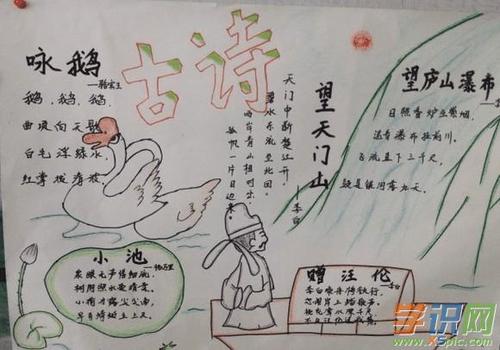 古诗
咏鹅
—骆宾王
鹅,鹅,鹅,
曲项向天歌
白毛浮绿水,
红掌拨清波
望天门山
天门中断楚江开,
碧水东流至此回.
两岸青山相对出
孤帆一片日边来.
—李白
望庐山瀑布
日照香炉生紫烟,
遥看瀑布挂前川,
飞流直下三千尺,
疑是银河落九天.
小池
—杨万里
泉眼无声惜细流,
树阴照水爱晴柔,
小荷才露尖尖角,
早有蜻蜓立上头.
赠汪伦
—李白
李白乘舟将欲行,
忽闻岸上踏歌声,
桃花潭水深千尺,
不及汪伦送我情.
学识网